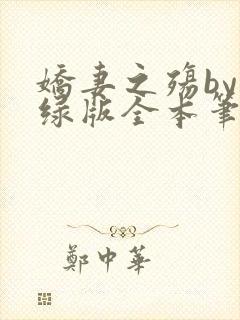 嬌妻之殤by
绿版全本筆
鄭中華